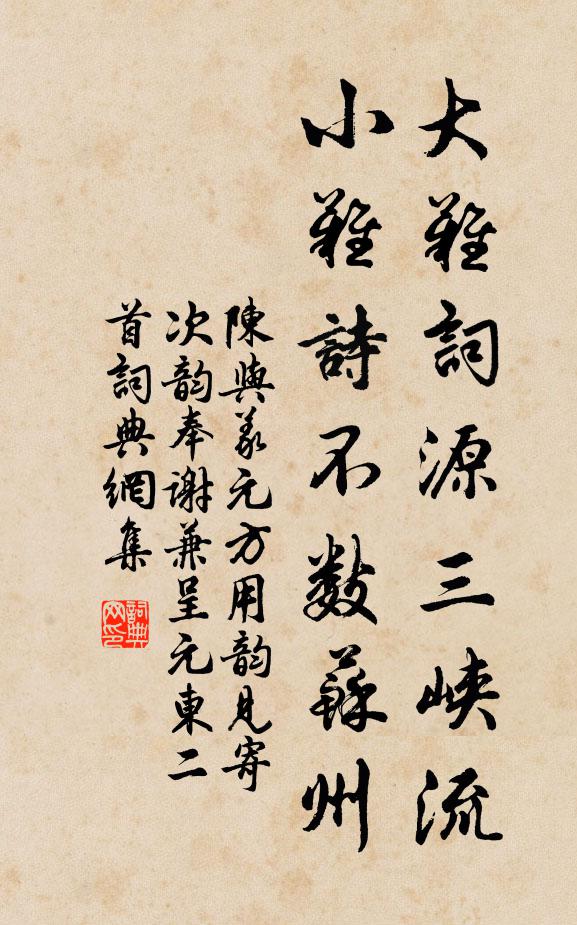 大難詞源三峽流
小難詩不數蘇州
陳與義元方用韵見寄
次韵奉謝兼呈元東二
首詞典網集
詞典網印